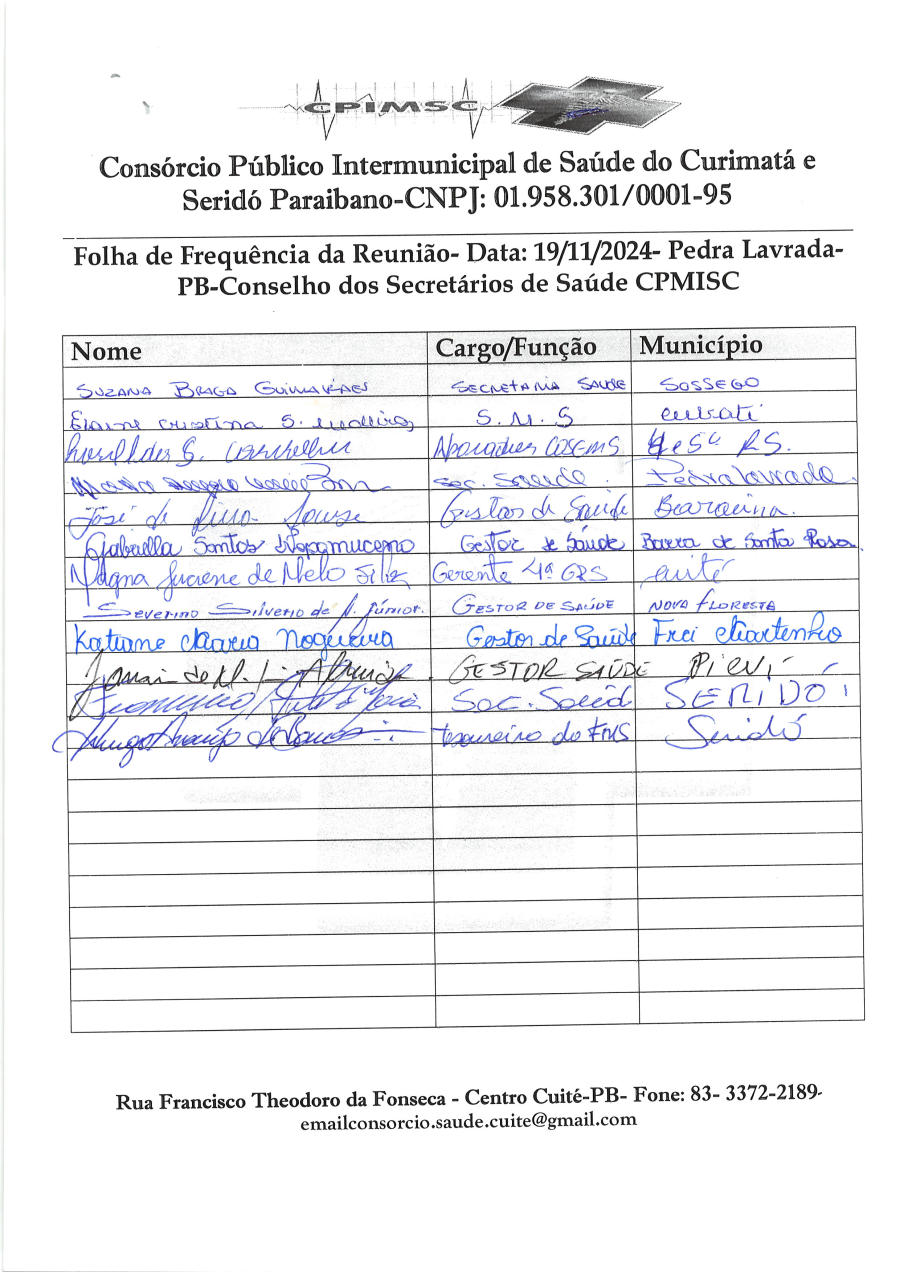 CPIMSC
Consórcio Público Intermunicipal de Saúde do Curimatá e
Seridó Paraibano-CNPJ: 01.958.301/0001-95
Folha de Frequência da Reunião- Data: 19/11/2024- Pedra Lavrada-
PB-Conselho dos Secretários de Saúde CPMISC
Nome Cargo/Função Município
SUZANA BRAGA GUIMARAES SECRETARIA SAUDE SOSSEGO
Elaine Cristina S. S.M.S
G. 4ª e 5ª RS.
Maria Sec. Saude. Pedra lavrada.
José de Souza Gestor de Saúde Baraúna.
Gabriella Santos Nepomuceno Gestor de Saúde Barra de Santa Rosa
Magna Luciene de Melo Silva Gerente 4ª GRS Cuité
SEVERINO SILVERIO DE A. JÚNIOR. GESTOR DE SAÚDE NOVA FLORESTA
Katiane Maria Nogueira Gestor de Saúde Frei Martinho
GESTOR SAÚDE PICUÍ
Sec. Saúd SERIDÓ
Araujo tesoureiro do FMS Seridó
Rua Francisco Theodoro da Fonseca - Centro Cuité-PB- Fone: 83- 3372-2189-
emailconsorcio.saude.cuite@gmail.com